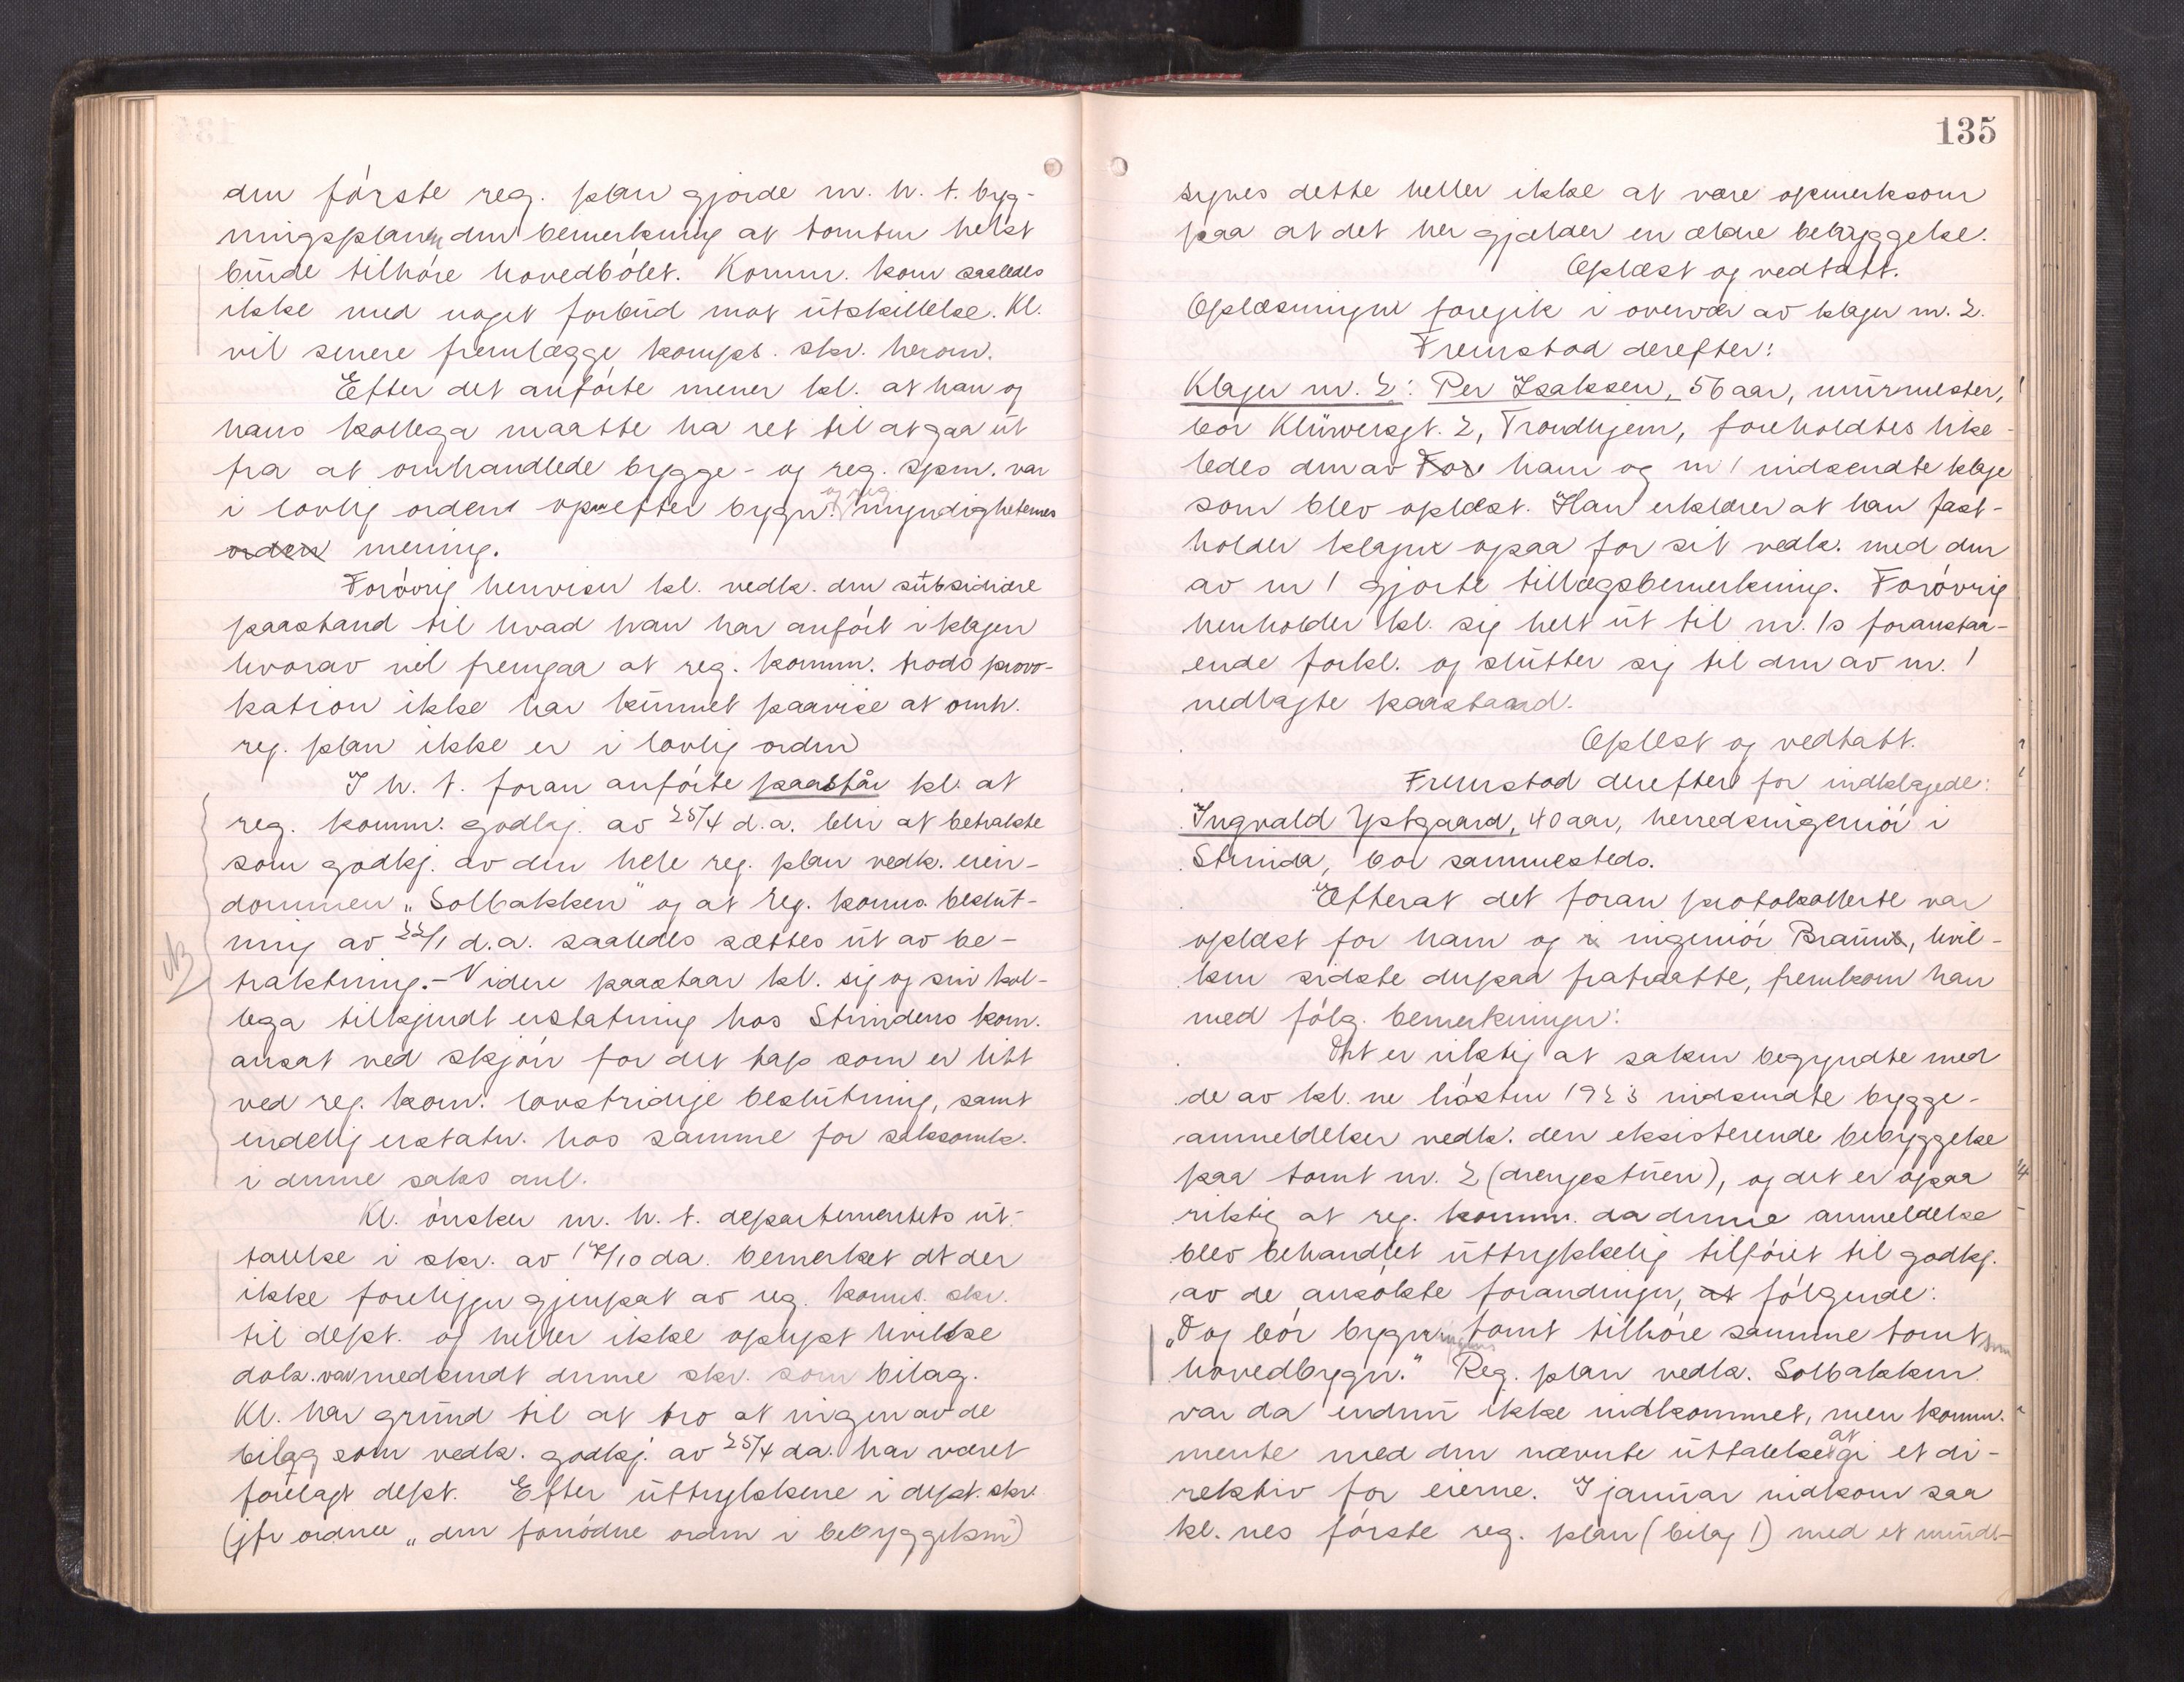 den første reg. plan gjorde m. h. t. byg-
ningsplanen den bemerkning at tomten helst
burde tilhøre hovedbølet. Komm. kom saaledes
ikke med noget forbud mot utskillelse. Kl.
vil senere fremlægge kompl. skr. herom.
Efter det anførte mener kl. at han og
hans kollega maatte ha ret til at gaa ut
fra at omhandlede bygge- og reg. spm. var
i lovlig orden efter bygn. og reg myndigheternes
orden mening.
Forøvrig henviser kl. vedk. den subsidiære
paastand til hvad han har anført i klagen
hvorav vil fremgaa at reg. komm. trods provo-
kation ikke har kunnet paavise at omh.
reg. plan ikke er i lovlig orden
I h. t. foran anførte paastår kl. at
reg. komm. godkj. av 25/4 d.a. blir at betrakte
som godkj. av den hele reg. plan vedk. eien-
dommen "Solbakken" og at reg. komms. beslut-
ning av 22/1 d.a. saaledes sættes ut av be-
traktning.- Videre paastaar kl. sig og sin kol-
lega tilkjendt erstatning hos Strindens kom.
ansat ved skjøn for det tap som er litt
ved reg. kom. lovstridige beslutning, samt
endelig erstatn. hos samme for saksomk.
i denne saks anl.
Kl. ønsker m. h. t. departementets ut-
talelse i skr. av 17/10 da. bemerket at der
ikke foreligger gjenpat av reg. komms. skr.
til dept. og heller ikke oplyst hvilke
dok. var medsendt denne skr. som bilag.
Kl. har grund til at tro at ingen av de
bilag som vedk. godkj. av 25/4 da. har været
forelagt dept. Efter uttrykkene i dept. skr.
(jfr ordnee "den fornødne orden i bebyggelsen")
135
synes dette heller ikke at være opmerksom
paa at det her gjælder en ældre bebyggelse.
Oplæst og vedtatt.
Oplæsningen foregik i overvær av klager nr. 2.
Fremstod derefter:
Klager nr. 2: Per Isaksen, 56 aar, murmester,
bor Klüwersgt. 2, Trondhjem, foreholdtes like-
ledes den av ham og nr 1 indsendte klage
som blev oplæst. Han erklærer at han fast-
holder klagen ogsaa for sit vedk. med den
av nr 1 gjorte tillægsbemerkning. Forøvrig
henholder kl. sig helt ut til nr. 1s foranstaa-
ende forkl. og slutter sig til den av nr. 1
nedlagte paastaand.
Oplest og vedtatt.
Fremstod derefter for indklagede:
Ingvald Ystgaard, 40 aar, herredsingeniør i
Strinda, bor sammesteds.
Efterat det foran protokollerte var
oplæst for ham og ingeniør Braun, hvil-
ken sidste derpaa fratraatte, fremkom han
med følg. bemerkninger:
Det er riktig at saken begyndte med
de av kl. ne høsten 1923 indsendte bygge-
anmeldelser vedk. den eksisterende bebyggelse
paa tomt nr. 2 (drengestuen), og det er ogsaa
riktig at reg. komm. da denne anmeldelse
blev behandlet uttrykkelig tilføiet til godkj.
av de ansøkte forandringer, at følgende:
"Dog bør bygningens tomt tilhøre samme tomt som
hovedbygn." Reg. plan vedk. Solbakken
var da endnu ikke indkommet, men komm.
mente med den nævnte uttalelse at gi et di-
rektiv for eierne. I januar indkom saa
kl. nes første reg. plan (bilag 1) med et mundt-